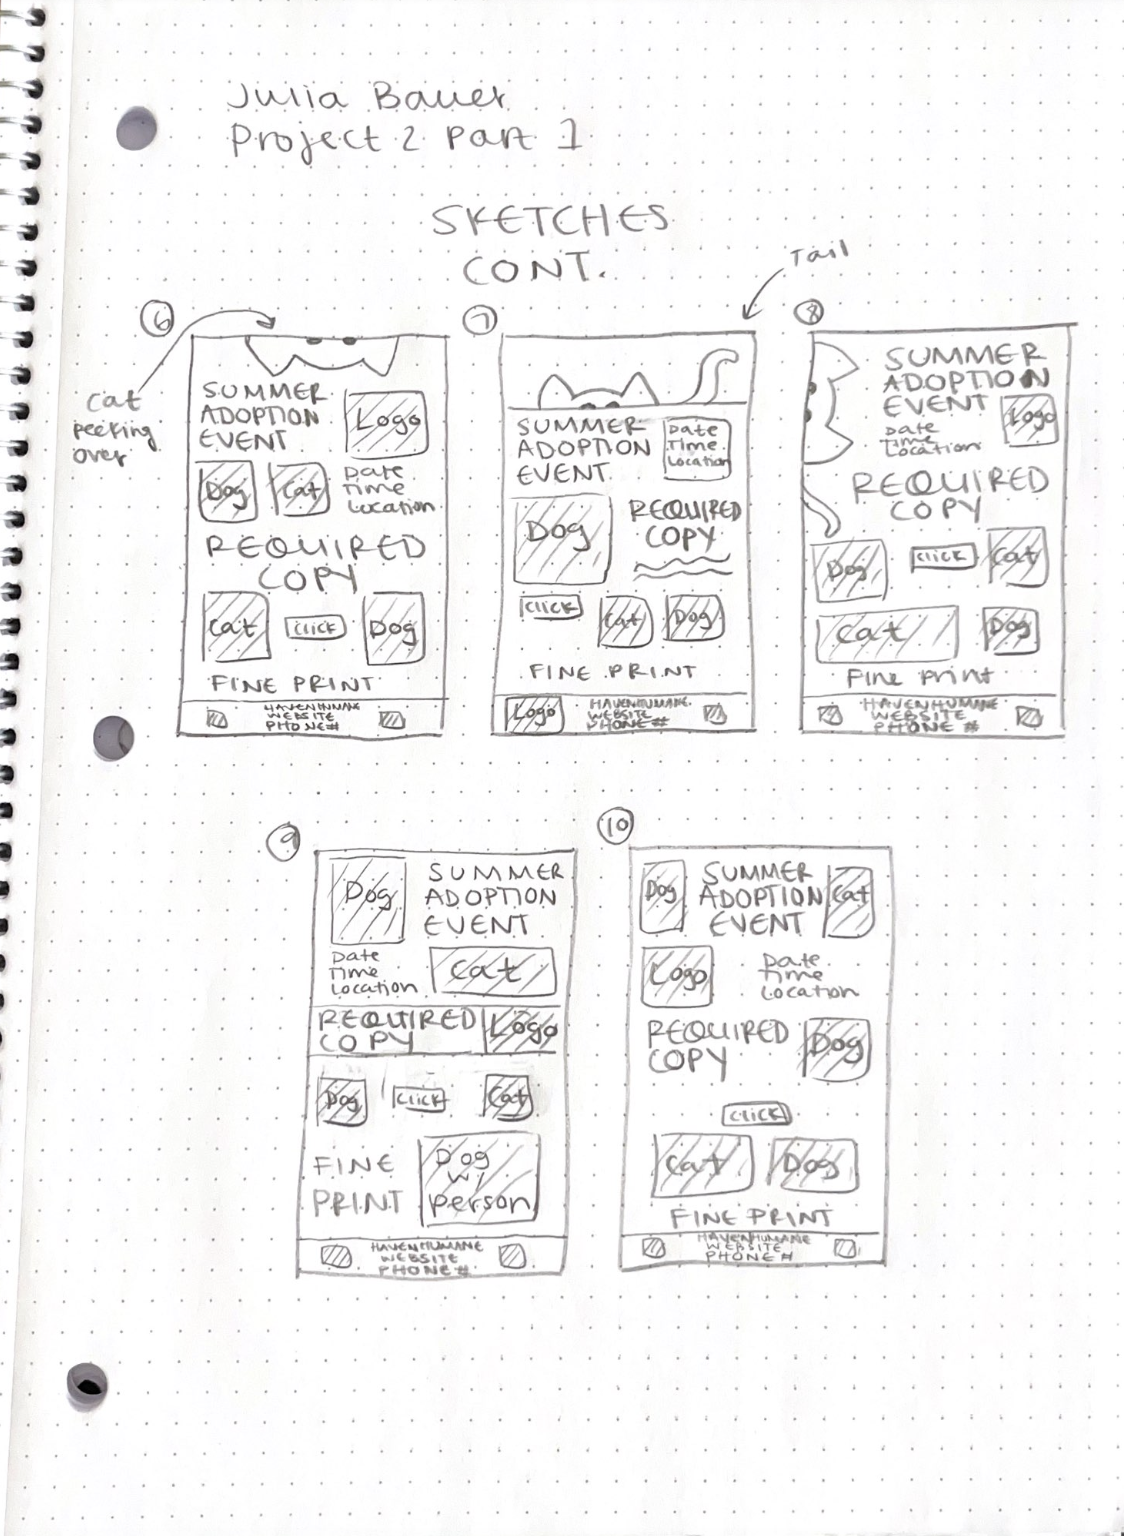 Julia Bauer
Project 2 Part 1
SKETCHES
CONT.
Tail
6
cat
peeking
over
SUMMER
ADOPTION
EVENT
Logo
Dog
Cat
Date
Time
Location
REQUIRED
COPY
Cat
CLICK
Dog
FINE PRINT
HAVENHUMANE
WEBSITE
PHONE #
7
SUMMER
ADOPTION
EVENT
Date
Time
Location
Dog
REQUIRED
COPY
CLICK
Cat
Dog
FINE PRINT
Logo
HAVENHUMANE
WEBSITE
PHONE #
8
SUMMER
ADOPTION
EVENT
Logo
Date
Time
Location
REQUIRED
COPY
Dog
CLICK
Cat
Cat
Dog
Fine print
HAVENHUMANE
WEBSITE
PHONE #
9
Dog
SUMMER
ADOPTION
EVENT
Date
Time
Location
Cat
REQUIRED
COPY
Logo
Dog
CLICK
Cat
FINE
PRINT
Dog
w/
person
HAVENHUMANE
WEBSITE
PHONE #
10
Dog
SUMMER
ADOPTION
EVENT
Cat
Logo
Date
Time
Location
REQUIRED
COPY
Dog
CLICK
Cat
Dog
FINE PRINT
HAVENHUMANE
WEBSITE
PHONE #